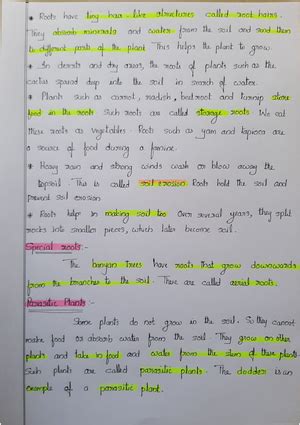 * Roots have tiny hair like structures called root hairs.
They absorb minerals and water from the soil and send them
to different parts of the plant. This helps the plant to grow.
* In deserts and dry areas, the roots of plants such as the
cactus spread deep into the soil in search of water.
* Plants such as carrot, radish, beet root and turnip store
food in the roots. Such roots are called storage roots. We eat
these roots as vegetables. Roots such as yam and tapioca are
a source of food during a famine.
* Heavy rain and strong winds wash or blow away the
topsoil. This is called soil erosion. Roots hold the soil and
prevent soil erosion.
* Roots help in making soil too. Over several years, they split
rocks into smaller pieces, which later become soil.
Special roots :-
The banyan trees have roots that grow downwards
from the branches to the soil. These are called aerial roots.
Parasitic Plants :-
Some plants do not grow in the soil. So they cannot
make food or absorb water from the soil. They grow on other
plants and take in food and water from the stem of these plants.
Such plants are called parasitic plants. The dodder is an
example of a parasitic plant.